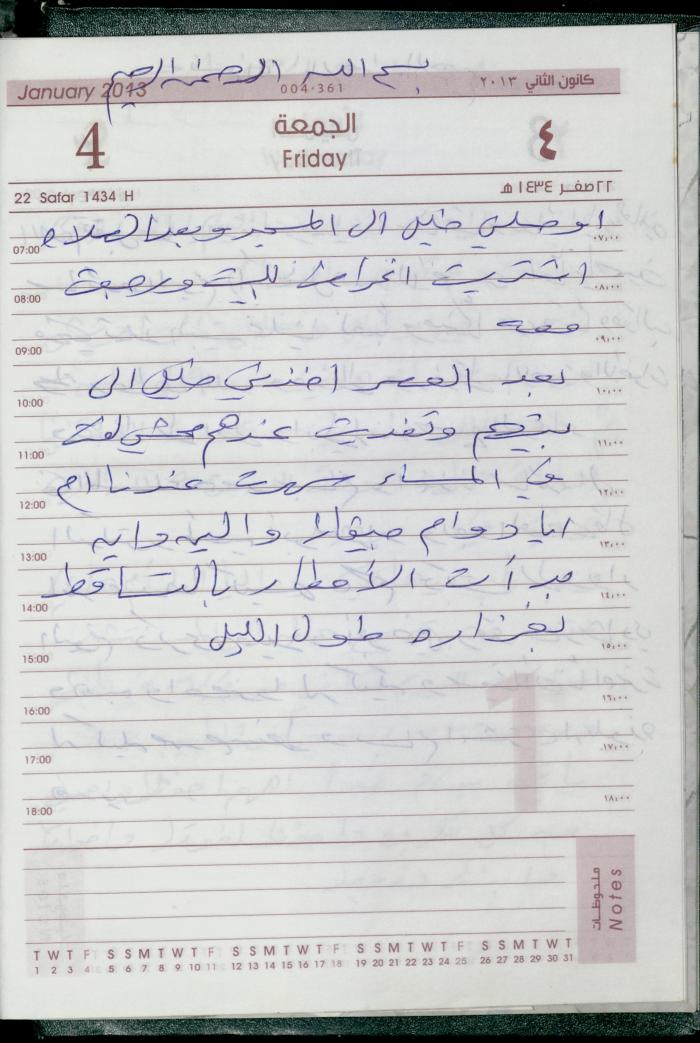 بسم الله الرحمن الرحيم
January 2013 004-361 كانون الثاني ٢٠١٣
4 الجمعة ٤
Friday
22 Safar 1434 H ٢٢ صفر ١٤٣٤ هـ
اوصلني خليل الى المسجد وبعد الصلاه
07:00 ٠٧,٠٠
اشتريت اغراض للبيت ورجعت
08:00 ٠٨,٠٠
معه
09:00 ٠٩,٠٠
بعد العصر اخذني خليل الى
10:00 ١٠,٠٠
بيتهم وتغديت عندهم محشي
11:00 ١١,٠٠
في المساء سهرت عندنا ام
12:00 ١٢,٠٠
اياد وام
13:00 ١٣,٠٠
بدأت الأمطار بالتساقط
14:00 ١٤,٠٠
بغزاره طول الليل
15:00 ١٥,٠٠
16:00 ١٦,٠٠
17:00 ١٧,٠٠
18:00 ١٨,٠٠
1
ملحوظات
Notes
T W T F S S M T W T F S S M T W T F S S M T W T F S S M T W T
1 2 3 4 5 6 7 8 9 10 11 12 13 14 15 16 17 18 19 20 21 22 23 24 25 26 27 28 29 30 31